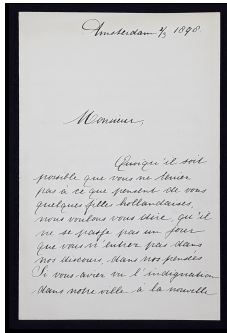 Amsterdam 2/3 1898
Monsieur,
Quoiqu'il soit
possible que vous ne teniez
pas à ce que pensent de vous
quelques filles hollandaises,
nous voulons vous dire, qu'il
ne se passe pas un jour
que vous n'entrez pas dans
nos discours, dans nos pensées
Si vous aviez vu l'indignation
dans notre ville à la nouvelle